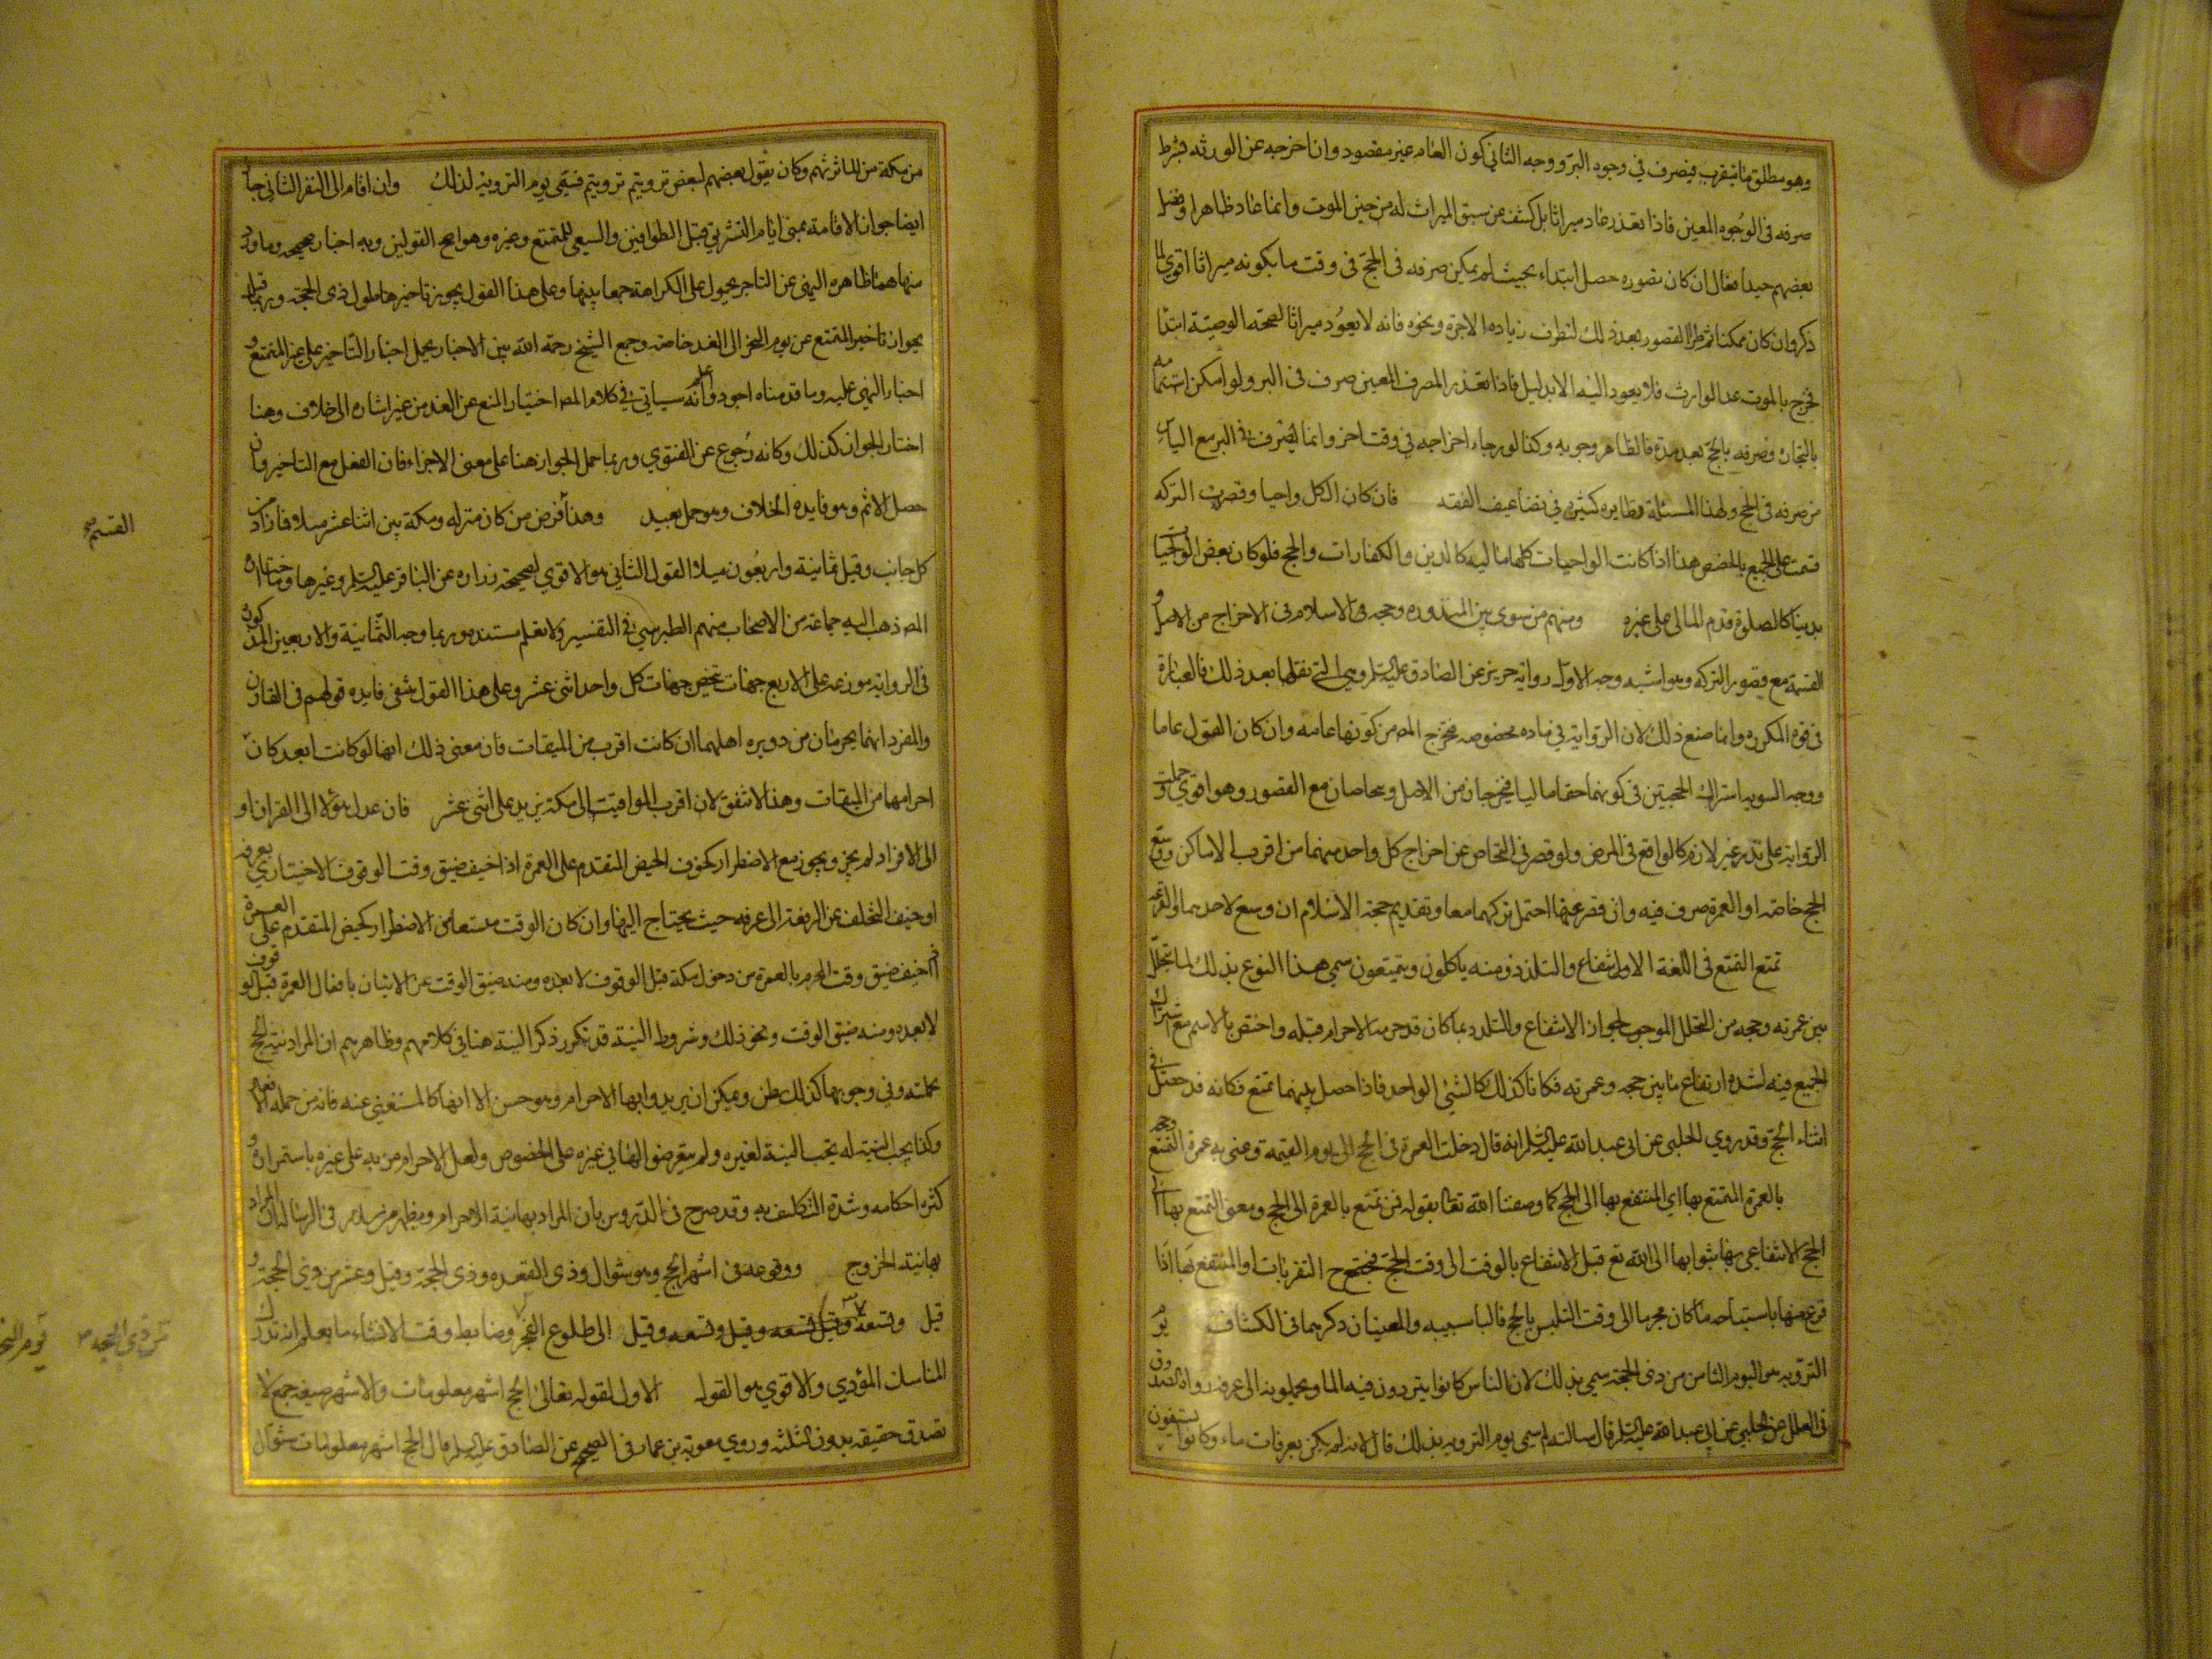 وهو مطلق ما يتقرب فيصرف في وجود البر ووجه الثاني كون العام غير مقصود وانا خرجه عن الورثه فبشرط
صرفه في الوجوه المعين فاذا تعذر عاد ميراثا بل كشف عن سبق الميراث له من حين الموت وانما عاد ظاهرا وفصل
بعضهم جيدا فقال ان كان قصوره حصل ابتداء بحيث لم يمكن صرفه في الحج في وقت ما بكونه ميراثا اقوي لما
ذكر وان كان ممكنا ثم طرا القصور بعد ذلك لتطرف زياده الاجرة ونحوه فانه لا يعود ميراثا لصحته الوصية ابتدا
فخرج بالموت عن الوارث فلا يعود اليه الا بدليل فاذا تعذر المصرف المعين صرف في البر ولو امكن استنماه
بالتجارة وصرفه بالحج بعد مدة فالظاهر وجوبه وكذا لو رجاء اخراجه في وقت اخر وانما يصرف في البر مع الياس
من صرفه في الحج ولهذا المسئلة نظايره كثيرة في تضاعيف الفقه فان كان الكل واجبا وقصرت التركه
قسمت على الجميع بالحصص هذا اذا كانت الواجبات كلها ماليه كالدين والكفارات والحج فلو كان بعض الواجبات
بدنيا كالصلوة قدم المالى على غيره ومنهم من سوى بين المنذوره وحجه في الاسلام في الاخراج من الاصل
القسمة مع قصور التركه وهو اشبه وجه الاول رواية حريز عن الصادق عليه السلم وهي التي نقلها بعد ذلك فالعبارة
في قوة المكرره وانما صنع ذلك لان الرواية في ماده مخصوصه فخرج المص من كونها عامه وان كان القول عاما
ووجه السويه اشتراك الحجتين في كونهما حقا ماليا فيخرجان من الاصل وتحاصان مع القصور وهو اقوي وحملت
الرواية على نذر غير لازم كالواقع في المرض ولو قصر في التحاص عن اخراج كل واحد منهما من اقرب الاماكن ووسع
الحج خاصة او العمرة صرف فيه وان قصر عنهما احتمل تركهما معا وتقديم حجة الاسلام ان وسع لاحدهما والقرعه
تمتع التمتع في اللغة الاول انتفاع والتلذذ ومنه ياكلون ويتمتعون سمي هذا النوع بذلك لما تخلل
بين عمرته وحجه من التحلل الموجب لجواز الانتفاع والتلذذ بما كان قد حرمه الاحرام قبله واختص بالاسم مع اشتراك
الجميع فيه لشدة ارتفاع ما بين حجه وعمرته فكانا كذلك كالشئي الواحد فاذا حصل بينهما تمتع فكانه قد حصل في
اثناء الحج وقد روي الحلبي عن ابى عبد الله عليه السلم انه قال دخلت العمرة في الحج الى يوم القيمة وهي به عمرة التمتع وحجه
بالعمرة المتمتع بها اي المنتفع بها الى الحج كما وصفنا الله تعا بقوله فمن تمتع بالعمرة الى الحج ومعنى التمتع بها اما
الحج الانتفاعي بها بثوابها الى الله تع قبل الانتفاع بالوقت الى وقت الحج فيجتمع ح التقربات او المنتفع بها اذا
فرع منها باستباحه ما كان محرما الى وقت التلبس بالحج فالباسببيه والمعنيان ذكرهما في الكشاف يوم
الترويه هو اليوم الثامن من ذى الحجة سمي بذلك لان الناس كانوا يتردون فيه الما ويحملونه الى عرفه رواه الصدوق
في العلل عن الحلبي عن ابى عبد الله عليه السلم قال سالته لم سمي يوم الترويه بذلك قال لانه لم يكن بعرفات ماء وكانوا يستقون
من مكة من الماء ثريثهم وكان يقول بعضهم لبعض ترويتم ترويتم فسمي يوم الترويه لذلك وان اقام الى النفر الثاني جاز
ايضا جواز الاقامة بمنى ايام التشريق قبل الطوافين والسعي للمتمتع وغيره وهو اصح القولين وبه اخبار صحيحه وما ورد
منها مما ظاهره النهي عن التاخر محمول على الكراهة جمعا بينها وعلى هذا القول يجوز تاخيرها طول ذى الحجة وربما قيل
بجواز تاخير المتمتع عن يوم النحر الى الغد خاصه وجمع الشيخ رحمة الله بين الاخبار بحمل اخبار التاخير على غير المتمتع و
اخبار النهي عليه وما قدمناه اجود واعلم انه سياتي في كلام المص اختيار المنع عن الغد من غير اشاره الى خلاف وهنا
اختار الجواز كذلك وكانه رجوع عن الفتوي وربما حمل الجواز هنا على معنى الاجزاء فان الفعل مع التاخير وان
حصل الاثم وهو فايدة الخلاف وهو حمل بعيد وهذا فرض من كان منزله ومكة بين اثنا عشر ميلا فما زاد من
كل جانب وقيل ثمانية واربعون ميلا القول الثاني هو الاقوي لصحيحة زراره عن الباقر عليه السلم وغيرها وما اختاره
المص ذهب اليه جماعة من الاصحاب منهم الطبرسي في التفسير ولا نعلم مستنده وربما وجه الثمانية والاربعين المذكورة
في الرواية موزعه على الاربع جهات تخص جهات كل واحد اثنى عشر وعلى هذا القول ينتفي فايده قولهم في القارن
والمفرد انهما يحرمان من دويرة اهلهما ان كانت اقرب من الميقات فان معنى ذلك انها لو كانت ابعد كان
احرامها من الميقات وهذا لا يتفق لان اقرب المواقيت الى مكة يزيد على اثنى عشر فان عدل هؤلا الى القران او
الى الافراد لم يجز ويجوز مع الاضطرار كخوف الحيض المتقدم على العمرة اذا خيف ضيق وقت الوقوف الاختياري بعرفه
او خيف التخلف عن الرفقة الى عرفه حيث يحتاج اليها وان كان الوقت متسعا من الاضطرار كحيض المتقدم على العمرة
اذا خيف ضيق وقت المحرم بالعمرة من دخول مكة قبل الوقوف لا بعده ومنه ضيق الوقت عن الاتيان بافعال العمرة قبل الوقوف
لا بعده ومنه ضيق الوقت ونحو ذلك وشروط النية قد تكرر ذكر النية هنا في كلامهم وظاهرهم ان المراد نية الحج
بجملته وفي وجوبها كذلك نظر ويمكن ان يريدوا بها الاحرام وهو حسن الا انها كالمستغني عنه فانه من جملة الافعال
وكما يجب النية له يجب النية لغيره ولم يتعرضوا لها في غيره على الخصوص ولعل الاحرام مزيه على غيره باستمراره و
كثرة احكامه وشدة التكاليف به وقد صرح في الدروس بان المراد بها نية الاحرام ويظهر من سلار في الرسالة ان المراد
بها نية الخروج ووقوعه في اشهر الحج وهو شوال وذى القعده وذى الحجة وقيل وعشر من ذي الحجة و
قيل وتسعه وقيل وتسعه وقيل وتسعه وقيل الى طلوع الفجر وضابط وقت الانشاء ما يعلم انه يدرك
المناسك المؤدي والاقوي هو القول الاول لقوله تعالى الحج اشهر معلومات والاشهر صيغة جمع لا
تصدق حقيقة بدون الثلثه وروي معوية بن عمار في الصحيح عن الصادق عليه السلم قال الحج اشهر معلومات شوال
القسم صح
من ذي الحجه